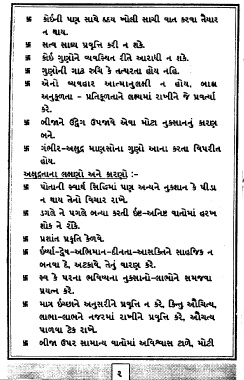 卐 કોઈની પણ સાથે હ્રદય ખોલી સાચી વાત કરવા તૈયાર
ન થાય.
卐 સત્વ સાધ્ય પ્રવૃત્તિ કરી ન શકે.
卐 કોઇ ગુણોને વ્યવસ્થિત રીતે આરાધી ન શકે.
卐 ગુણોની ગાઢ રુચિ કે તત્પરતા હોય નહિ.
卐 એનો વ્યવહાર આત્માનુલક્ષી ન હોય, બાહ્ય
અનુકૂળતા - પ્રતિકૂળતાને લક્ષ્યમાં રાખીને જે પ્રવર્ત્યા
કરે.
卐 બીજાને ઉદ્વેગ ઉપજાવે એવા મોટા નુકસાનનું કારણ
બને.
卐 ગંભીર-અક્ષુદ્ર માણસોના ગુણો આના કરતા વિપરીત
હોય.
અક્ષુદ્રતાના લક્ષણો અને કારણો :-
卐 પોતાની સ્વાર્થ સિદ્ધિમાં પણ અન્યને નુકશાન કે પીડા
ન થાય તેનો વિચાર રાખે.
卐 ડગલે ને પગલે બન્યા કરતી ઇષ્ટ-અનિષ્ટ વાતોમાં હરખ
શોક ને રોકે.
卐 પ્રશાંત પ્રકૃતિ કેળવે.
卐 ઇર્ષ્યા-દ્વેષ-અભિમાન-દીનતા-આસક્તિને સાહજિક ન
બનવા દે, અટકાવે, તેનું વારણ કરે.
卐 સ્વ કે પરના ભવિષ્યના નુકસાનો-લાભોને સમજવા
પ્રયત્ન કરે.
卐 માત્ર ઇચ્છાને અનુસરીને પ્રવૃત્તિ ન કરે, કિન્તુ ઔચિત્ય,
લાભા-લાભને નજરમાં રાખીને પ્રવૃત્તિ કરે, ઔચત્ય
પાળવા ટેક રાખે.
卐 બીજા ઉપર સામાન્ય વાતોમાં અવિશ્વાસ ટાળે, મોટી
૨